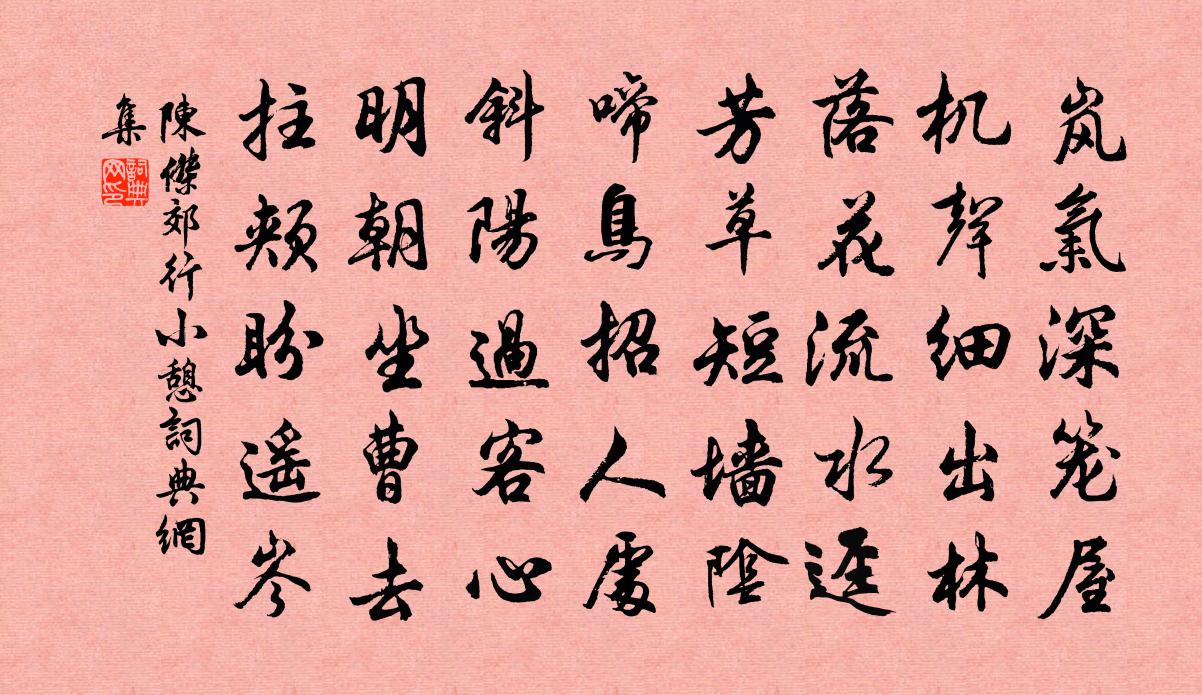 岚氣深笼屋
机聲细出林
落花流水逕
芳草短墙陰
啼鳥招人處
斜陽過客心
明朝坐曹去
拄頰盼遥岑
陳傑郊行小憩詞典網
集
詞典网印